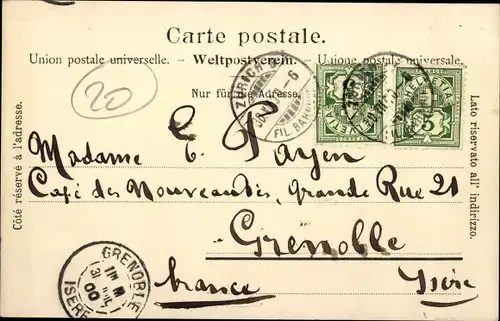 Carte postale.
Union postale universelle. - Weltpostverein. - Unione postale universale.
Nur für die Adresse.
20
ZÜRICH
FIL. BAHNH
HELVETIA
5
Côté réservé à l'adresse.
Lato riservato all' indirizzo.
Madame E. Payen
Café des Nouveautés, Grande Rue 21
Grenoble
France Isère
GRENOBLE
00
ISERE